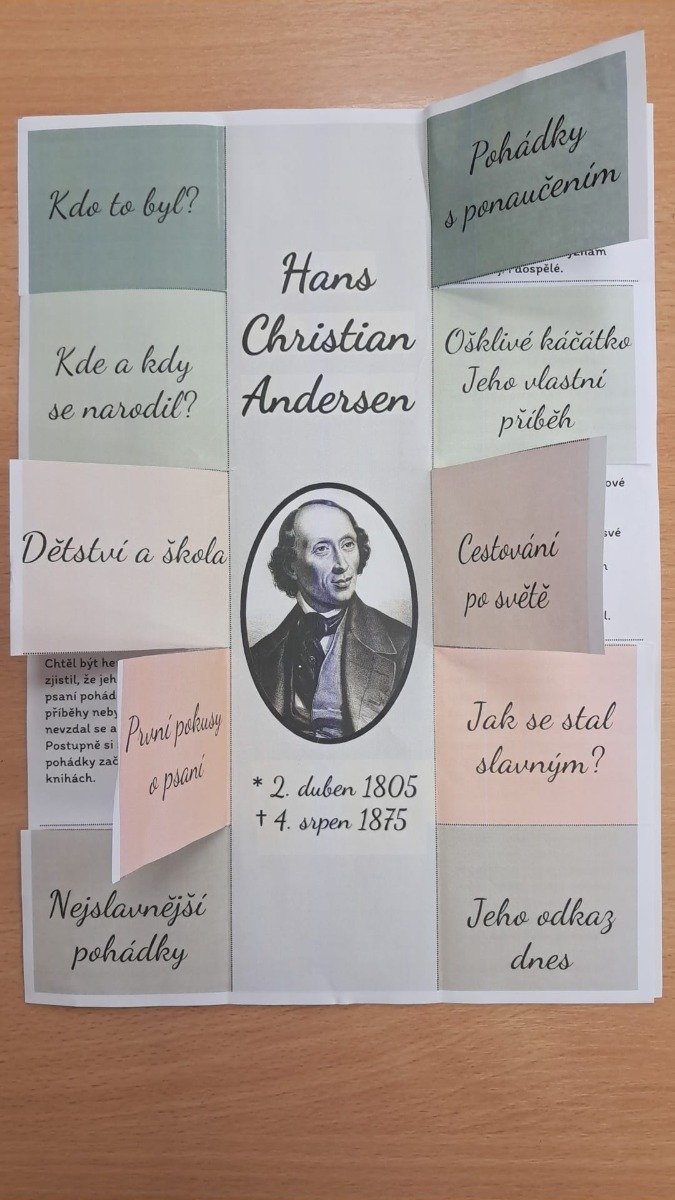 Kdo to byl?
Kde a kdy
se narodil?
Dětství a škola
Chtěl být he
zjistil, že jeh
psaní pohád
příběhy neby
nevzdal se a
Postupně si
pohádky zač
knihách.
První pokusy
o psaní
Nejslavnější
pohádky
Hans
Christian
Andersen
* 2. duben 1805
† 4. srpen 1875
Pohádky
s ponaučením
dospělé.
Ošklivé káčátko
Jeho vlastní
příběh
Cestování
po světě
Jak se stal
slavným?
Jeho odkaz
dnes